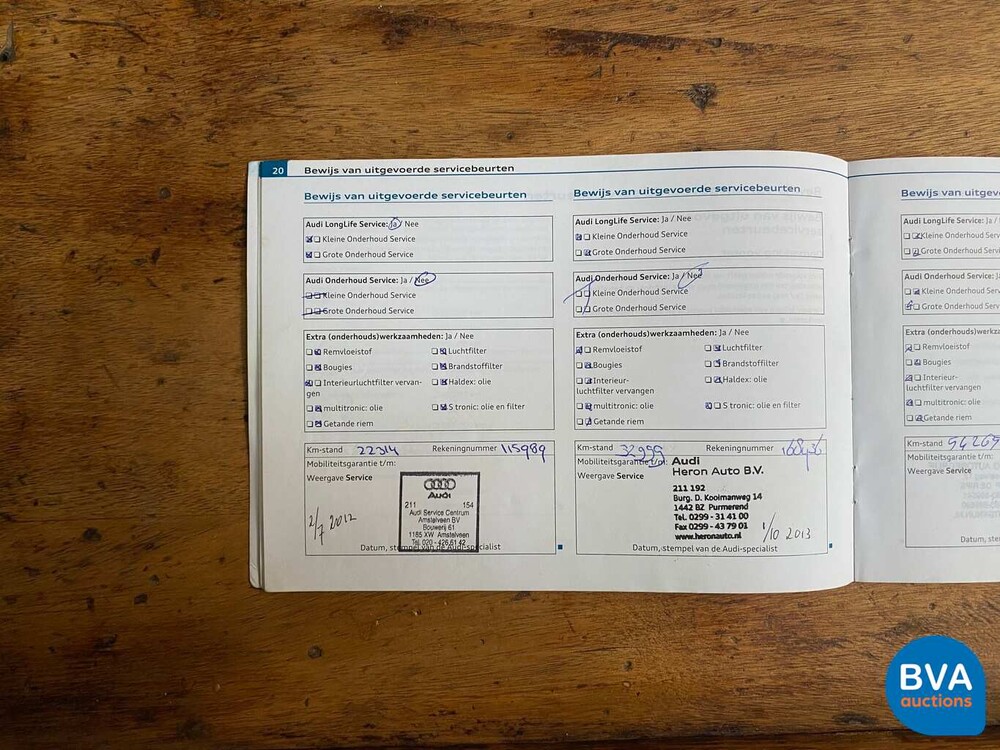 20 Bewijs van uitgevoerde servicebeurten
Bewijs van uitgevoerde servicebeurten
Audi LongLife Service: Ja / Nee
Kleine Onderhoud Service
Grote Onderhoud Service
Audi Onderhoud Service: Ja / Nee
Kleine Onderhoud Service
Grote Onderhoud Service
Extra (onderhouds)werkzaamheden: Ja / Nee
Remvloeistof Luchtfilter
Bougies Brandstoffilter
Interieurluchtfilter vervan- Haldex: olie
gen
multitronic: olie S tronic: olie en filter
Getande riem
Km-stand 22314 Rekeningnummer 115989
Mobiliteitsgarantie t/m:
Weergave Service
Audi
211 154
Audi Service Centrum
Amstelveen BV
Bouwerij 61
1185 XW Amstelveen
Tel. 020 - 426 61 42
2/7 2012
Datum, stempel van de Audi-specialist
Bewijs van uitgevoerde servicebeurten
Audi LongLife Service: Ja / Nee
Kleine Onderhoud Service
Grote Onderhoud Service
Audi Onderhoud Service: Ja / Nee
Kleine Onderhoud Service
Grote Onderhoud Service
Extra (onderhouds)werkzaamheden: Ja / Nee
Remvloeistof Luchtfilter
Bougies Brandstoffilter
Interieur- Haldex: olie
luchtfilter vervangen
multitronic: olie S tronic: olie en filter
Getande riem
Km-stand 32999 Rekeningnummer
Mobiliteitsgarantie t/m:
Weergave Service
Audi
Heron Auto B.V.
211 192
Burg. D. Kooimanweg 14
1442 BZ Purmerend
Tel. 0299 - 31 41 00
Fax 0299 - 43 79 01
www.heronauto.nl
1/10 2013
Datum, stempel van de Audi-specialist
Bewijs van uitgev
Audi LongLife Service: Ja /
Kleine Onderhoud Serv
Grote Onderhoud Serv
Audi Onderhoud Service: Ja
Kleine Onderhoud Serv
Grote Onderhoud Serv
Extra (onderhouds)werkza
Remvloeistof
Bougies
Interieur-
luchtfilter vervangen
multitronic: olie
Getande riem
Km-stand
Mobiliteitsgarantie t/m:
Weergave Service
Datum, ste
BVA
auctions